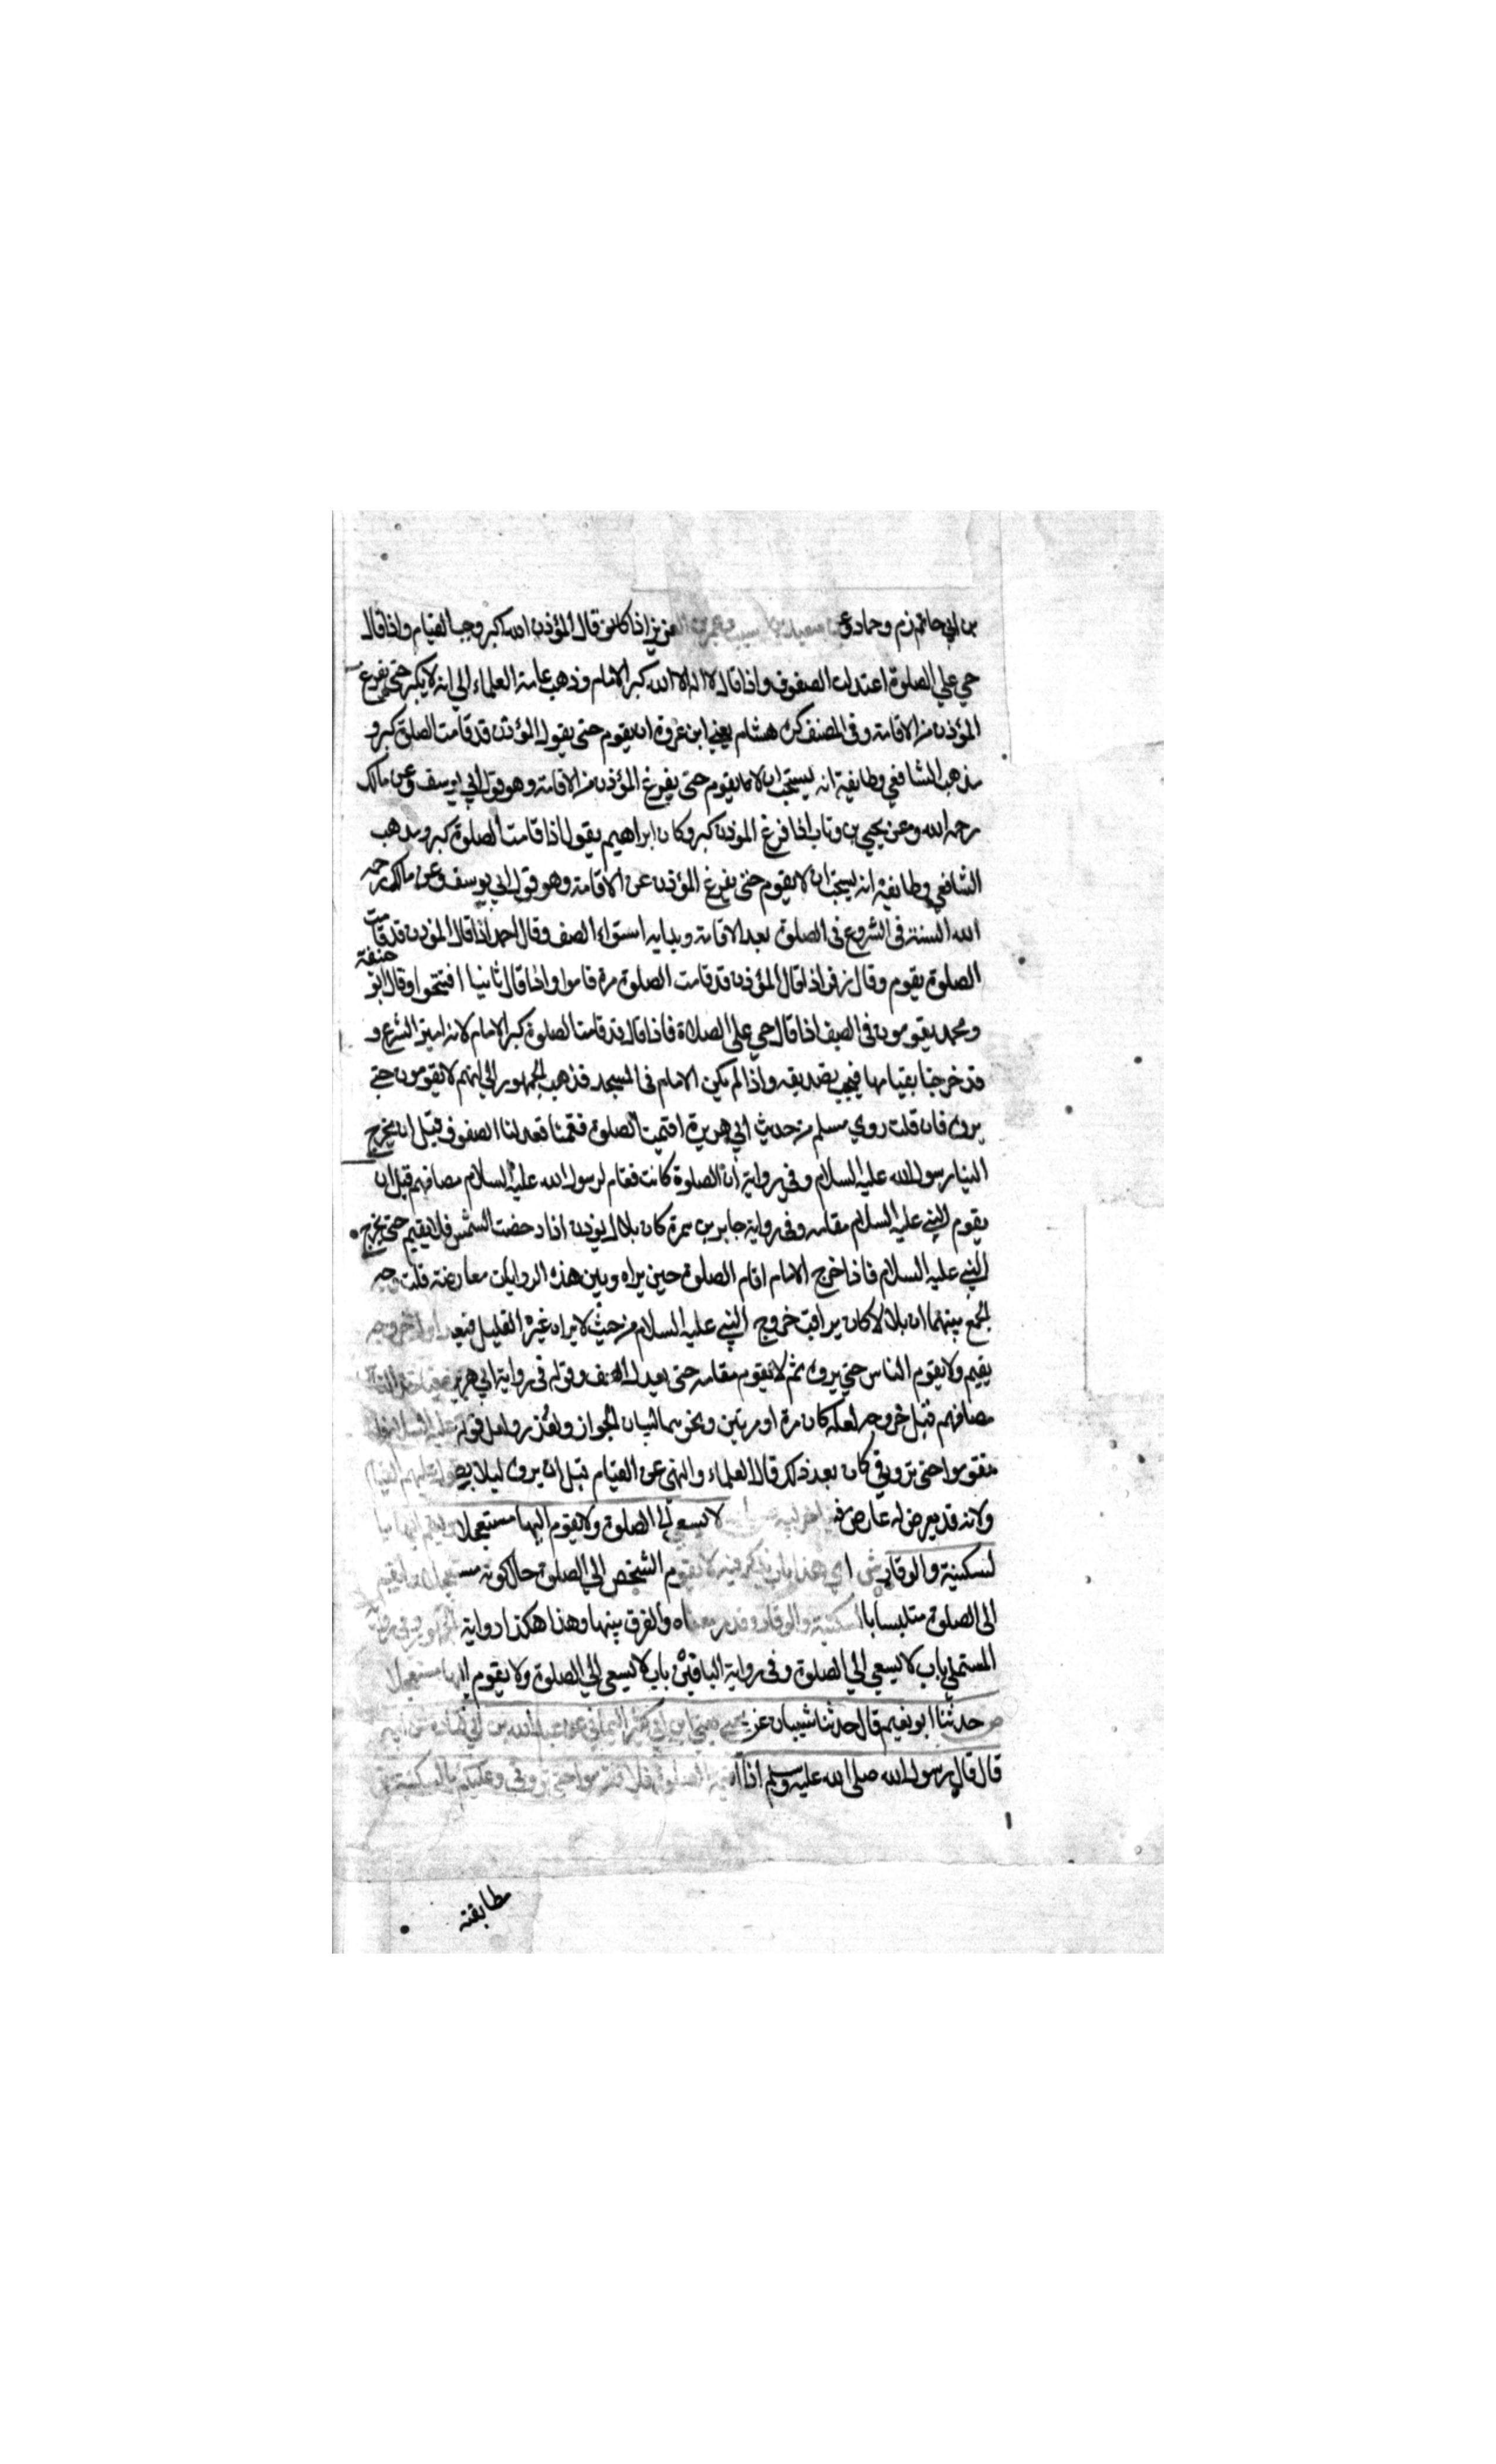 بن ابي حازم وحماد وعن سعيد بن المسيب وعمر بن العزيز اذا كان قال المؤذن الله اكبر وجب القيام واذا قال
حي علي الصلوة اعتدلت الصفوف واذا قال لا اله الا الله كبر الامام وذهب عامة العلماء الي انه لا يكبر حتي يفرغ
المؤذن من الاقامة وفي المصنف كره هشام يعني ابن عروة ان يقوم حتي يقول المؤذن قد قامت الصلوة كبر و
مذهب الشافعي وطايفة انه يستحب ان لا يقوم حتي يفرغ المؤذن من الاقامة وهو قول ابي يوسف وعن مالك
رحمه الله وعن يحيي بن وثاب اذا فرغ المؤذن كبر وكان ابراهيم يقول اذا قامت الصلوة كبر ومذهب
الشافعي وطايفة انه يستحب ان لا يقوم حتي يفرغ المؤذن عن الاقامة وهو قول ابي يوسف وعن مالك رحمه
الله السنة في الشروع في الصلوة بعد الاقامة وبداية استواء الصف وقال احمد اذا قال المؤذن قد قامت
الصلوة يقوم وقال زفر اذا قال المؤذن قد قامت الصلوة مرة قاموا واذا قال ثانيا افتتحوا وقال ابو حنيفة
ومحمد يقومون في الصف اذا قال حي علي الصلاة فاذا قال قد قامت الصلوة كبر الامام لانه امين الشرع و
قد خبرنا بقيامها فيجب تصديقه واذا لم يكن الامام في المسجد فذهب الجمهور الي انهم لا يقومون حتي
يروه فان قلت روي مسلم من حديث ابي هريرة اقيمت الصلوة فقمنا فعدلنا الصفوف قبل ان يخرج
الينا رسول الله عليه السلام وفي رواية ان الصلوة كانت تقام لرسول الله عليه السلام مصافهم قبل ان
يقوم النبي عليه السلام مقامه وفي رواية جابر بن سمرة كان بلال يؤذن اذا دحضت الشمس فلا يقيم حتي يخرج
النبي عليه السلام فاذا خرج الامام اقام الصلوة حين يراه وبين هذه الروايات معارضة قلت وجه
الجمع بينهما ان بلالا كان يراقب خروج النبي عليه السلام من حيث لا يراه غيره الا القليل فبعد اول خروجه
يقيم ولا يقوم الناس حتي يروه ثم لا يقوم مقامه حتي يعدل الصف وقوله في رواية ابي هريرة
مصافهم قبل خروجه لعله كان مرة او مرتين ونحوهما لبيان الجواز ولعذر ولعل قوله عليه السلام فلا
تقوموا حتي تروني كان بعد ذلك قال العلماء والنهي عن القيام قبل ان يروه ليلا يطول عليهم القيام
ولانه قد يعرض له عارض لا يسعي الي الصلوة ولا يقوم اليها مستعجلا
لسكينة والوقار ش اي هذا باب يذكر فيه لا يقوم الشخص الي الصلوة حال كونه مستعجلا
الي الصلوة متلبسا بالسكينة والوقار وقد مر معناه والفرق بينها وهذا هكذا رواية
المستملي باب لا يسعي الي الصلوة وفي رواية الباقين باب لا يسعي الي الصلوة ولا يقوم اليها مستعجلا
ص حدثنا ابو نعيم قال حدثنا شيبان عن يحيي عن عبد الله بن ابي قتادة عن ابيه
قال قال رسول الله صلي الله عليه وسلم اذا اقيمت الصلوة فلا تقوموا حتي تروني وعليكم بالسكينة ش
مطابقته